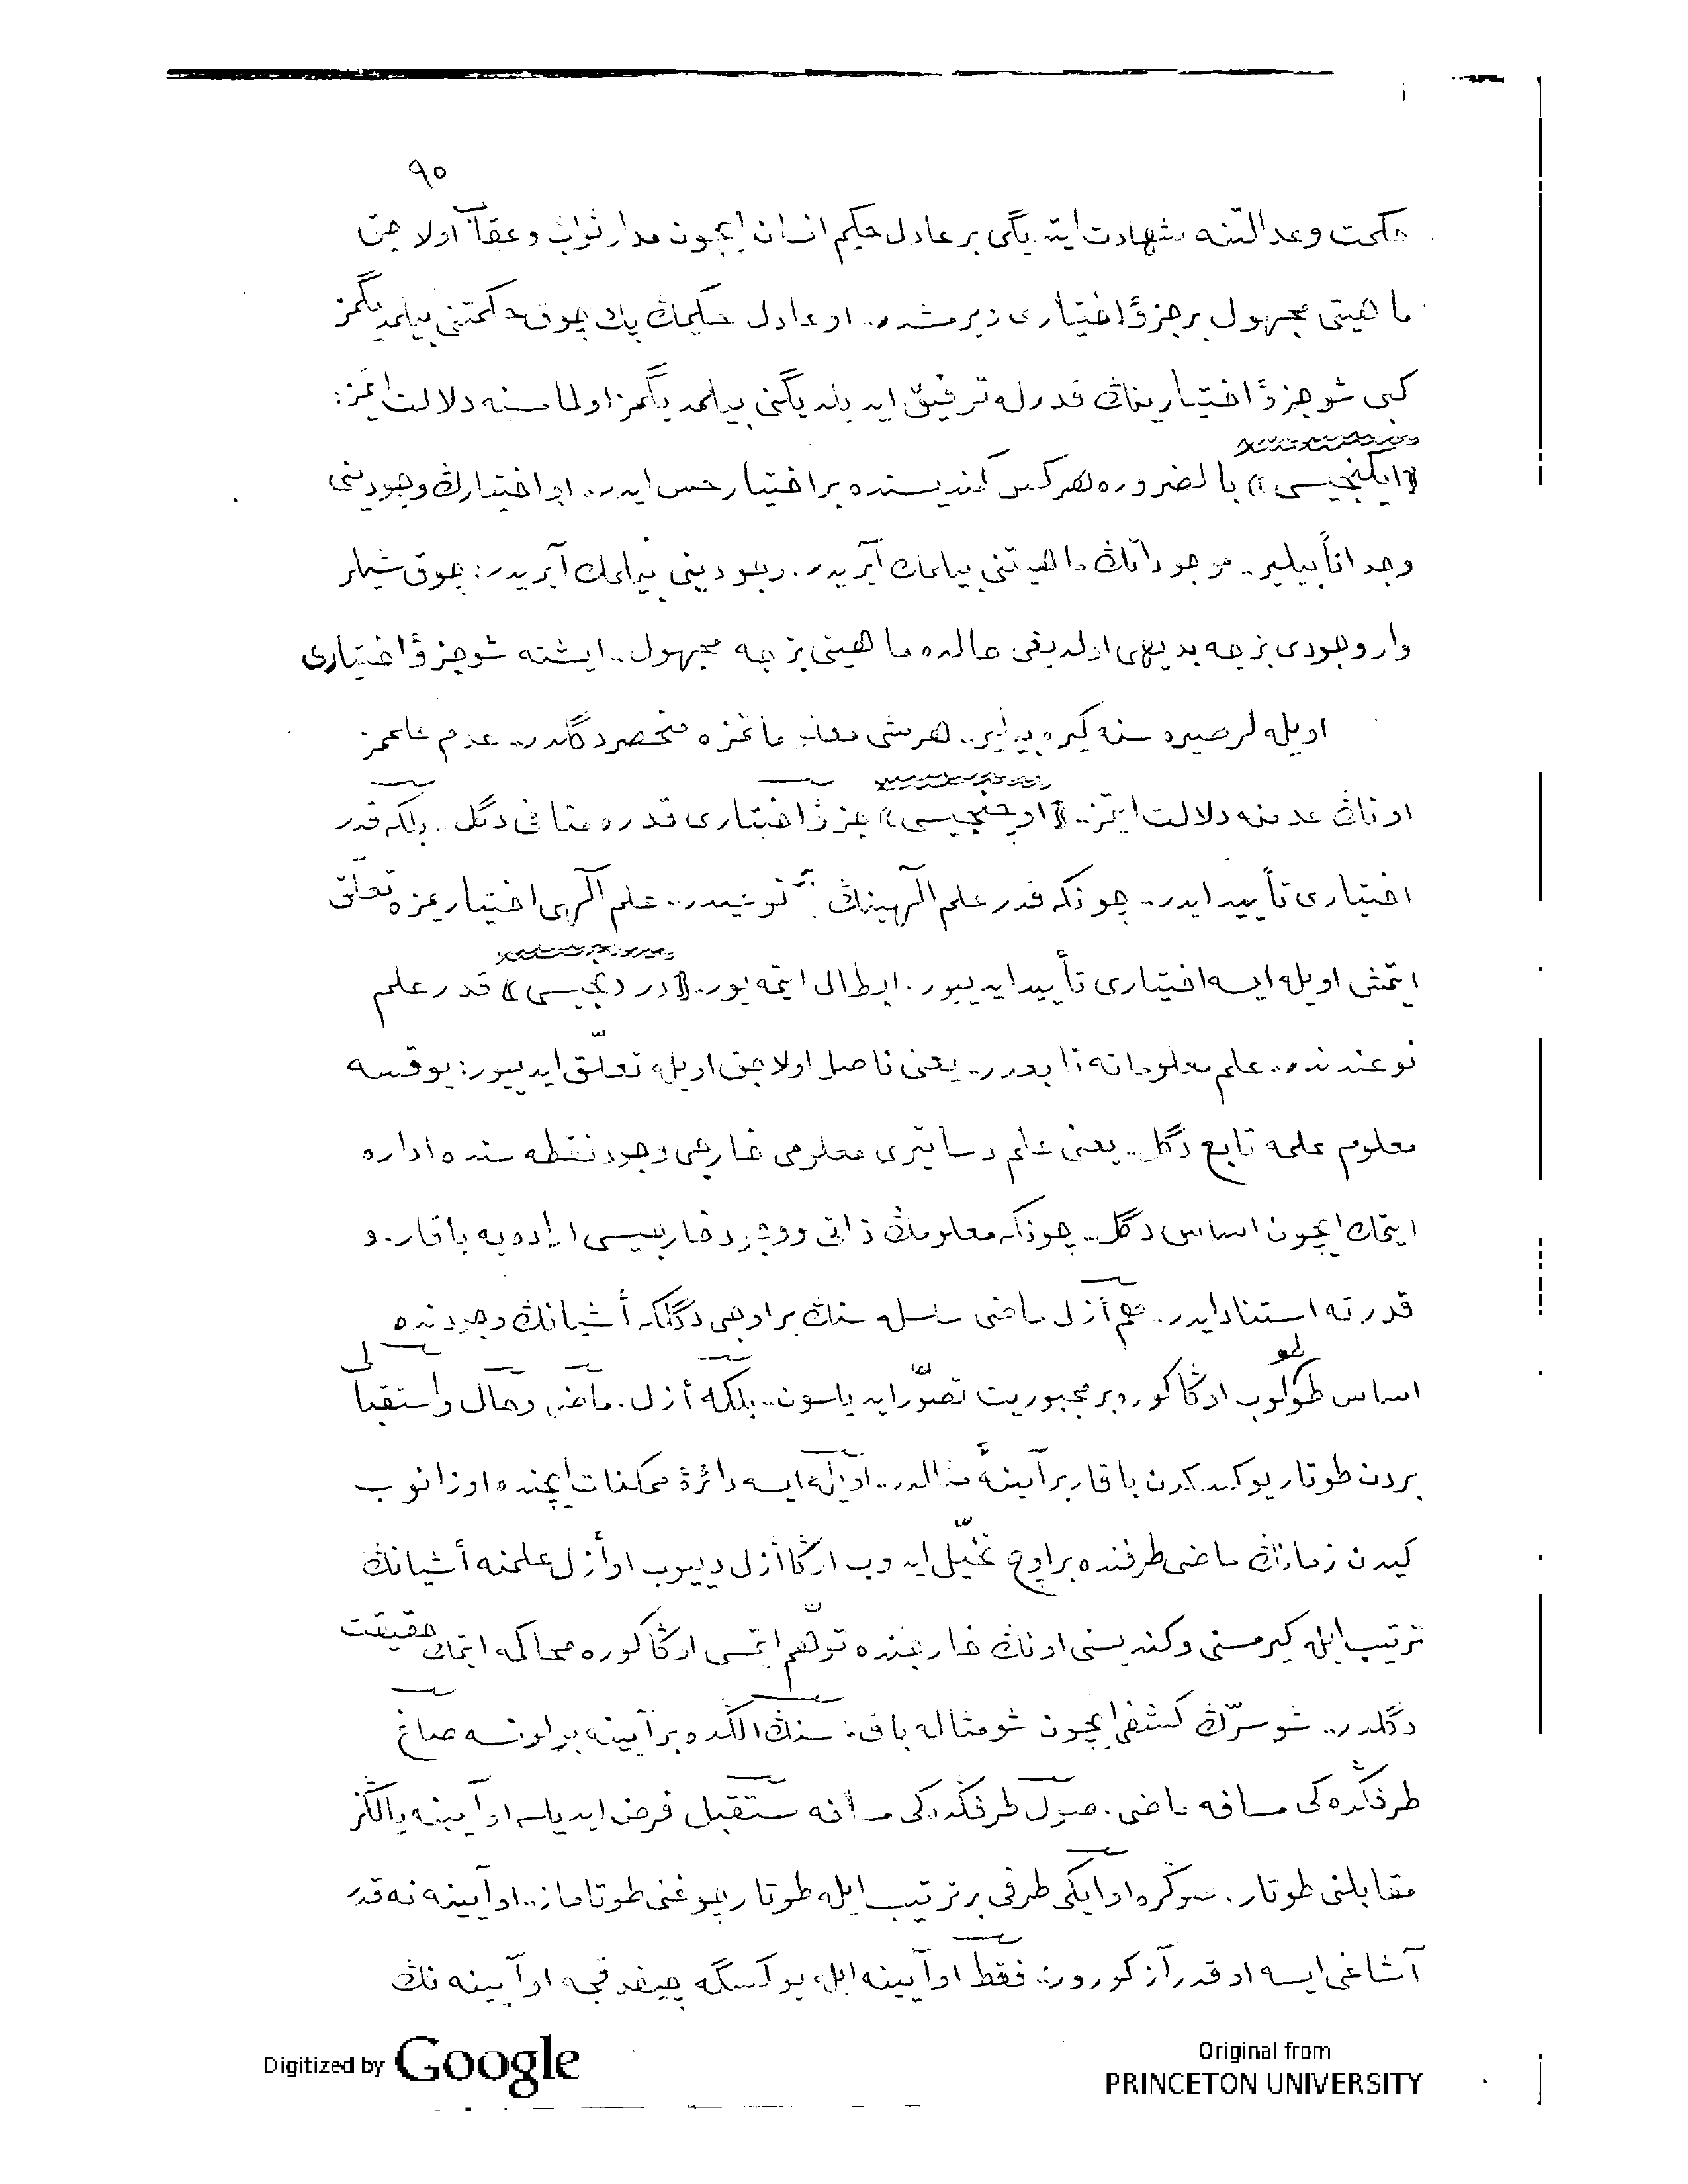 ٩٠
حكمت وعدالتنه شهادت ايتديگی بر عادل حكيم انسان ايچون مدار ثواب وعقاب اولاجق
ماهيتی مجهول بر جزؤ اختياری ويرمشدر.. او عادل حكيمڭ پك چوق حكمتنی بيلمديگمز
كبی شو جزؤ اختيارينڭ قدرله ترفيق ايديلديگنی بيلمديگمز اولمامسنه دلالت ايتمز:
((ايكنجيسی)) بالضروره هركس كنديسنده بر اختيار حس ايدر.. او اختيارڭ وجودينی
وجداناً بيلير.. موجوداتڭ ماهيتنی بيلمك آيريدر. وجودينی بيلمك آيريدر: چوق شيلر
وار وجودی بزجه بديهی اولديغی حالده ماهيتی بزجه مجهول.. ايشته شو جزؤ اختياری
اويله لر صيره سنه گيره بيلير.. هر شی معلوماتمزه منحصر دگلدر.. عدم علممز
اونڭ عدمنه دلالت ايتمز.. ((اوچنجيسی)) جزؤ اختياری قدره منافی دگل.. بلكه قدر
اختياری تأييد ايدر.. چونكه قدر علم الهينڭ بر نوعيدر.. علم الهی اختياريمزه تعلّق
ايتمش اويله ايسه اختياری تأييد ايدييور. ابطال ايتمه يور.. ((دردنجيسی)) قدر علم
نوعندندر.. علم معلوماته تابعدر.. يعنی ناصل اولاجق اويله تعلّق ايدييور: يوقسه
معلوم علمه تابع دگل.. يعنی علم دساتيری معلومی خارجی وجود نقطه سنده اداره
ايتمك ايچون اساس دگل.. چونكه معلومڭ ذاتی ووجود خارجيسی اراده يه باقار. و
قدرته استناد ايدر. هم أزل ماضی سلسله سنڭ بر اوجی دگلكه أشيانڭ وجودنده
اساس طوتولوب اوڭا گوره بر مجبوريت تصوّر ايديلسون.. بلكه أزل. ماضی وحال واستقبالی
بردن طوتار يوكسكدن باقار بر آيينۀ مثالدر.. اويله ايسه دائرۀ ممكنات ايچنده اوزانوب
گيدن زمانڭ ماضی طرفنده بر اوج تخيّل ايدوب اوڭا أزل دييوب او أزل علمنه أشيانڭ
ترتيب ايله گيرمسنی وكنديسنی اونڭ خارجنده توهّم ايتمسی اوڭا گوره محاكمه ايتمك حقيقت
دگلدر.. شو سرّڭ كشفی ايچون شو مثاله باق: سنڭ الڭده بر آيينه بولونسه صاغ
طرفڭده كی مسافه ماضی. صول طرفڭده كی مسافه مستقبل فرض ايديلسه او آيينه يالڭز
مقابلنی طوتار. صوڭره او ايكی طرفی بر ترتيب ايله طوتار چوغنی طوتاماز.. او آيينه نه قدر
آشاغی ايسه او قدر آز گورور.. فقط او آيينه ايله يوكسگه چيقدقجه او آيينه نڭ
Digitized by Google
Original from
PRINCETON UNIVERSITY